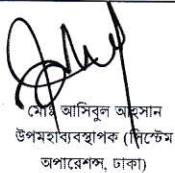 মোঃ আসিবুল আহসান
উপমহাব্যবস্থাপক (সিস্টেম
অপারেশন্স, ঢাকা)